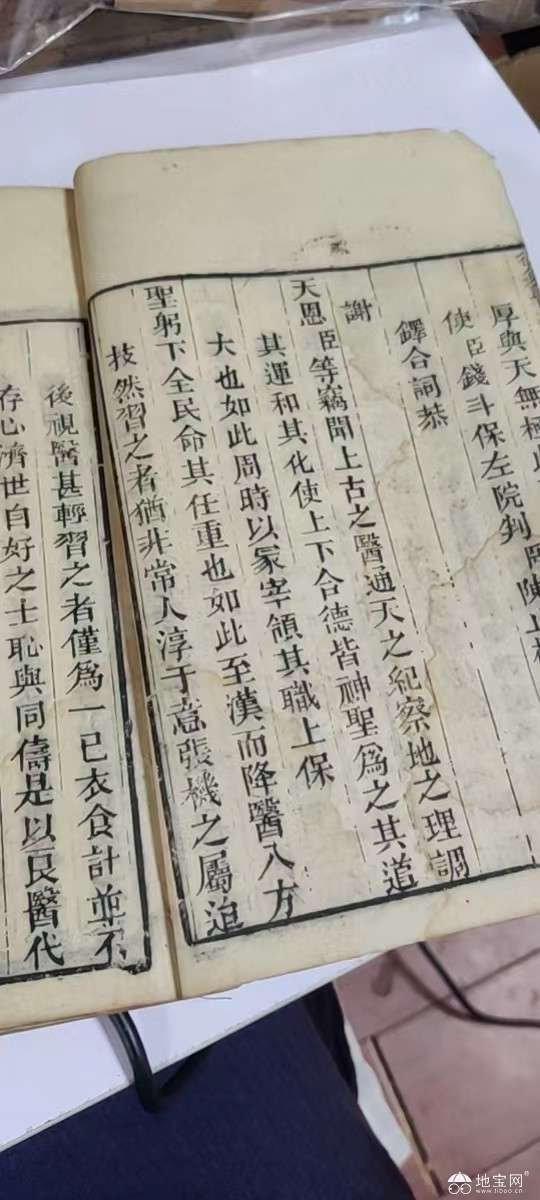 厚與天無極
使臣錢斗保左院判陳上
鐸合詞恭
謝
天恩臣等竊聞上古之醫通天之紀察地之理調
其運和其化使上下合德皆神聖為之其道
大也如此周時以冢宰領其職上保
聖躬下全民命其任重也如此至漢而降醫入方
技然習之者猶非常人淳于意張機之屬迨
後視醫甚輕習之者僅為一己衣食計並不
存心濟世自好之士恥與同儔是以良醫代
地宝网
www.tiboo.cn